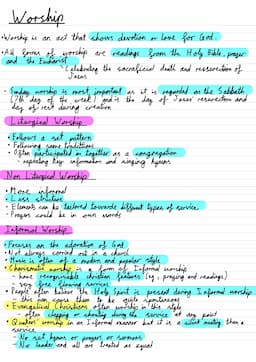 Worship
• Worship is an act that shows devotion or love for God.
• All forms of worship are readings from the Holy Bible, prayer
and the Eucharist
Celebrating the sacrificial death and resurrection of
Jesus
• Sunday worship is most important as it is regarded as the Sabbath
(7th day of the week) and is the day of Jesus' resurrection and
day of rest during creation
Liturgical Worship
• Follows a set pattern
• Following same traditions
• Often participated in together as a congregation
- repeating key information and singing hymns
Non Liturgical Worship
• More informal
• Less structure
• Elements can be tailored towards different types of service.
• Prayers could be in own words
Informal Worship
• Focuses on the adoration of God
• Not always carried out in a church
• Music is often of a modern and popular style
• Charismatic worship is a form of Informal worship
- have recognisable christian features (eg, praying and readings)
- very free flowing services
• People often believe the Holy Spirit is present during Informal worship
- this can cause them to be quite spontaneous
• Evangelical Christians often worship in this style
- often clapping or shouting during the service at any point
• Quakers worship in an informal manner but it is a silent meeting than a
service.
- No set hymns or prayers or sermons
- No leader and all are treated as equal